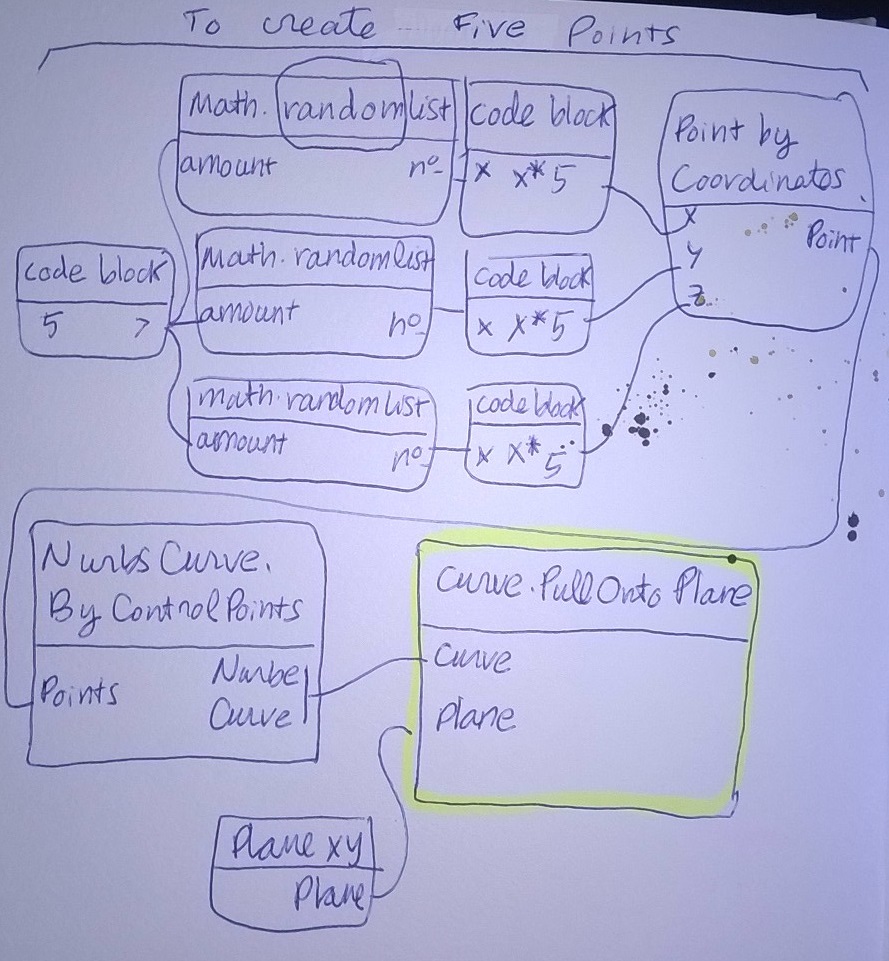 To create Five Points
Math. random list
amount nº
code block
x x*5
Point by
Coordinatos
x
y
z
Point
code block
5 >
Math. randomlist
amount nº
code block
x x*5
math. random list
amount nº
code block
x x*5
Nurbs Curve.
By Control Points
Points
Nurbe
Curve
Curve. Pull Onto Plane
Curve
Plane
Plane xy
Plane